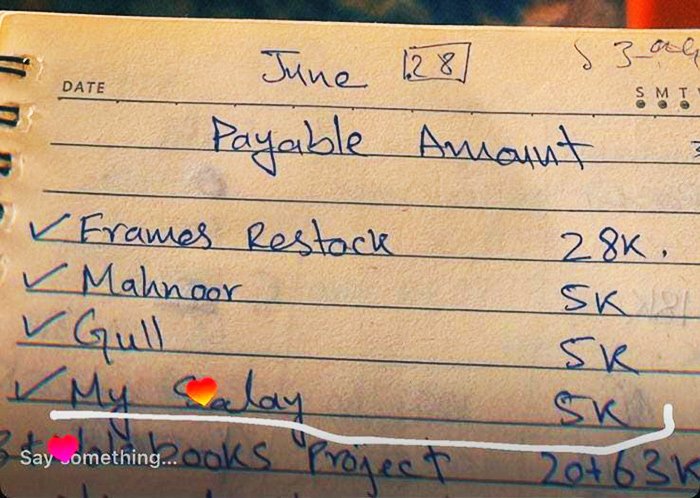 June 28
DATE
S M T
Payable Amount
✓ Frames Restock 28K.
✓ Mahnoor 5K
✓ Gull 5K
✓ My Salay 5K
books Project 20+63K
Say something...